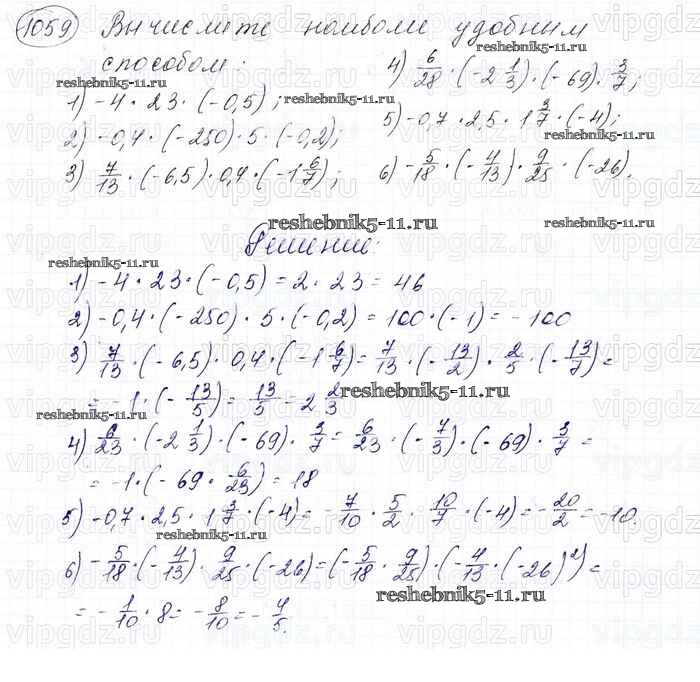 1059 Вычислите наиболее удобным
способом:
1) -4 · 23 · (-0,5);
2) -0,4 · (-250) · 5 · (-0,2);
3) 7/13 · (-6,5) · 0,4 · (-1 6/7);
4) 6/28 · (-2 1/3) · (-69) · 3/7;
5) -0,7 · 2,5 · 1 3/7 · (-4);
6) -5/18 · (-4/13) · 9/25 · (-26).
reshebnik5-11.ru
Решение:
1) -4 · 23 · (-0,5) = 2 · 23 = 46
2) -0,4 · (-250) · 5 · (-0,2) = 100 · (-1) = -100
3) 7/13 · (-6,5) · 0,4 · (-1 6/7) = 7/13 · (-13/2) · 2/5 · (-13/7) =
= -1 · (-13/5) = 13/5 = 2 2/3
4) 6/23 · (-2 1/3) · (-69) · 3/7 = 6/23 · (-7/3) · (-69) · 3/7 =
= -1 · (-69 · 6/23) = 18
5) -0,7 · 2,5 · 1 3/7 · (-4) = -7/10 · 5/2 · 10/7 · (-4) = -20/2 = -10.
6) -5/18 · (-4/13) · 9/25 · (-26) = (-5/18 · 9/25) · (-4/13 · (-26)²) =
= -1/10 · 8 = -8/10 = -4/5.
reshebnik5-11.ru
vipgdz.ru